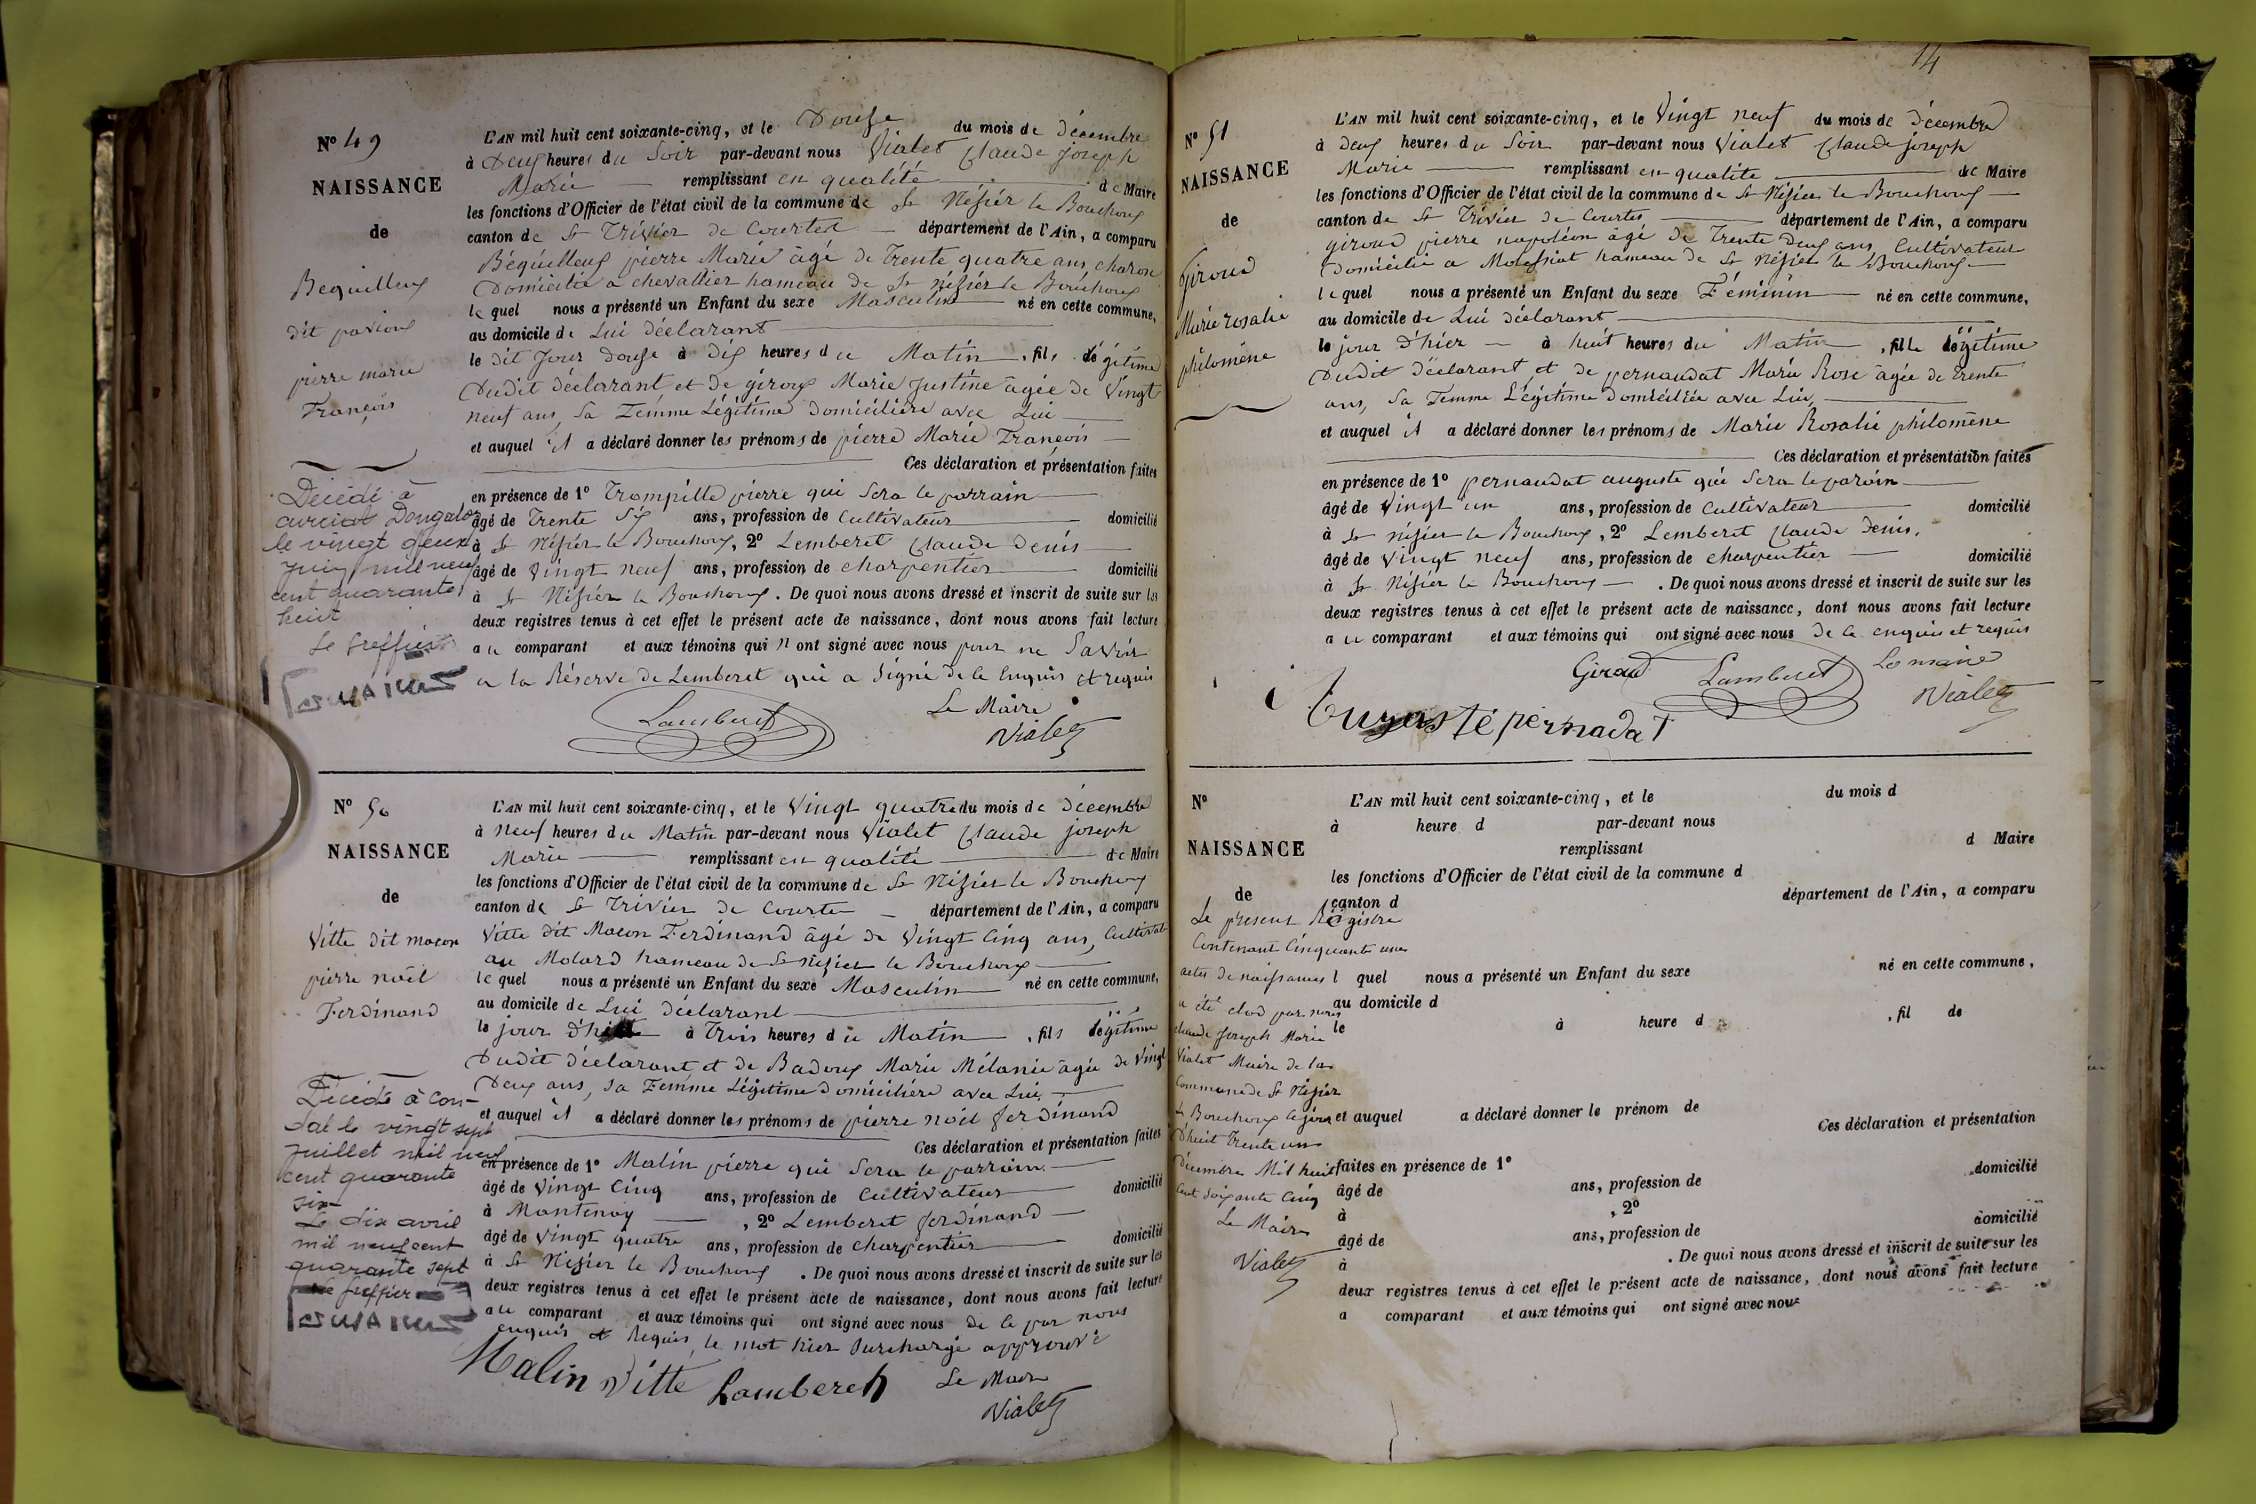 N° 49
NAISSANCE
de
Bequilleux
dit pavioux
pierre marie
François
Décédé à
curciat Dongalon
le vingt deux
juin mil neuf
cent quarante
huit
Le Greffier
L'AN mil huit cent soixante-cinq, et le Douze du mois de décembre
à Deux heures du Soir par-devant nous Vialet Claude joseph
Marie remplissant en qualité de Maire
les fonctions d'Officier de l'état civil de la commune de St Nizier le Bouchoux
canton de St Trivier de Courtes département de l'Ain, a comparu
Béquilleux pierre Marie âgé de Trente quatre ans, charon
Domicilié a chevallier hameau de St nizier le Bouchoux
lequel nous a présenté un Enfant du sexe Masculin né en cette commune,
au domicile de Lui déclarant
le dit Jour Douze à Dix heures du Matin, fils légitime
Dudit déclarant et de giroux Marie Justine âgée de Vingt
neuf ans, Sa Femme Légitime Domiciliére avec Lui
et auquel il a déclaré donner les prénoms de pierre Marie François
Ces déclaration et présentation faites
en présence de 1° Trompille pierre qui Sera le parrain
âgé de Trente Six ans, profession de Cultivateur domicilié
à St Nizier le Bouchoux, 2° Lemberet Claude Denis
âgé de Vingt neuf ans, profession de charpentier domicilié
à St Nizier le Bouchoux. De quoi nous avons dressé et inscrit de suite sur les
deux registres tenus à cet effet le présent acte de naissance, dont nous avons fait lecture
au comparant et aux témoins qui n ont signé avec nous pour ne Savoir
a la Réserve de Lemberet qui a Signé de ce Enquis et requis
Lamberet
Le Maire
Vialet
N° 50
NAISSANCE
de
Vitte dit macon
pierre noël
Ferdinand
Décédé à Con-
dal le vingt sept
juillet mil neuf
cent quarante
six
Le dix avril
mil neuf cent
quarante sept
Le Greffier
L'AN mil huit cent soixante-cinq, et le Vingt quatre du mois de décembre
à Neuf heures du Matin par-devant nous Vialet Claude joseph
Marie remplissant en qualité de Maire
les fonctions d'Officier de l'état civil de la commune de St Nizier le Bouchoux
canton de St Trivier de Courte département de l'Ain, a comparu
Vitte dit Macon Ferdinand âgé de Vingt Cinq ans, Cultivat
au Molard hameau de St Nizier le Bouchoux
lequel nous a présenté un Enfant du sexe Masculin né en cette commune,
au domicile de Lui déclarant
le jour d'hier à Trois heures du Matin, fils légitime
Dudit déclarant et de Badoux Marie Mélanie âgée de Vingt
Deux ans, Sa Femme Légitime Domiciliére avec Lui
et auquel il a déclaré donner les prénoms de pierre noël ferdinand
Ces déclaration et présentation faites
en présence de 1° Malin pierre qui Sera le parrain
âgé de Vingt Cinq ans, profession de Cultivateur domicilié
à Mantenay, 2° Lemberet ferdinand
âgé de Vingt quatre ans, profession de charpentier domicilié
à St Nizier le Bouchoux. De quoi nous avons dressé et inscrit de suite sur les
deux registres tenus à cet effet le présent acte de naissance, dont nous avons fait lecture
au comparant et aux témoins qui ont signé avec nous de ce par nous
enquis et Requis, le mot hier Surchargé approuvé
Malin Vitte Lambereh
Le Maire
Vialet
14
N° 51
NAISSANCE
de
Giroud
Marie rosalie
philomène
L'AN mil huit cent soixante-cinq, et le Vingt neuf du mois de décembre
à deux heures du Soir par-devant nous Vialet Claude joseph
Marie remplissant en qualité de Maire
les fonctions d'Officier de l'état civil de la commune de St Nizier le Bouchoux
canton de St Trivier de Courtes département de l'Ain, a comparu
giroud pierre napoléon âgé de Trente Deux ans Cultivateur
Domicilié a hameau de St Nizier le Bouchoux
lequel nous a présenté un Enfant du sexe Féminin né en cette commune,
au domicile de Lui déclarant
le jour d'hier à huit heures du Matin, fille légitime
Dudit Déclarant et de pernaudat Marie Rose âgée de Trente
ans, Sa Femme Légitime Domiciliée avec Lui,
et auquel il a déclaré donner les prénoms de Marie Rosalie philomène
Ces déclaration et présentation faites
en présence de 1° pernaudat auguste qui Sera le parain
âgé de Vingt un ans, profession de Cultivateur domicilié
à St nizier le Bouchoux, 2° Lemberet Claude Denis,
âgé de Vingt neuf ans, profession de charpentier domicilié
à St Nizier le Bouchoux. De quoi nous avons dressé et inscrit de suite sur les
deux registres tenus à cet effet le présent acte de naissance, dont nous avons fait lecture
au comparant et aux témoins qui ont signé avec nous de ce enquis et requis
Giroud Lamberet Le maire
Vialet
pernadat
N°
NAISSANCE
de
Le present Régistre
Contenant Cinquante un
actes de naissances
a été clos par nous
claude Joseph Marie
Vialet Maire de la
Commune de St Nizier
le Bouchoux le jour
d'huit Trente un
décembre Mil huit
cent soixante Cinq
Le Maire
Vialet
L'AN mil huit cent soixante-cinq, et le du mois d
à heure d par-devant nous
remplissant d Maire
les fonctions d'Officier de l'état civil de la commune d
canton d département de l'Ain, a comparu
l quel nous a présenté un Enfant du sexe né en cette commune,
au domicile d
le à heure d , fil de
et auquel a déclaré donner le prénom de
Ces déclaration et présentation
faites en présence de 1°
âgé de ans, profession de domicilié
à , 2°
âgé de ans, profession de domicilié
à . De quoi nous avons dressé et inscrit de suite sur les
deux registres tenus à cet effet le présent acte de naissance, dont nous avons fait lecture
a comparant et aux témoins qui ont signé avec nous